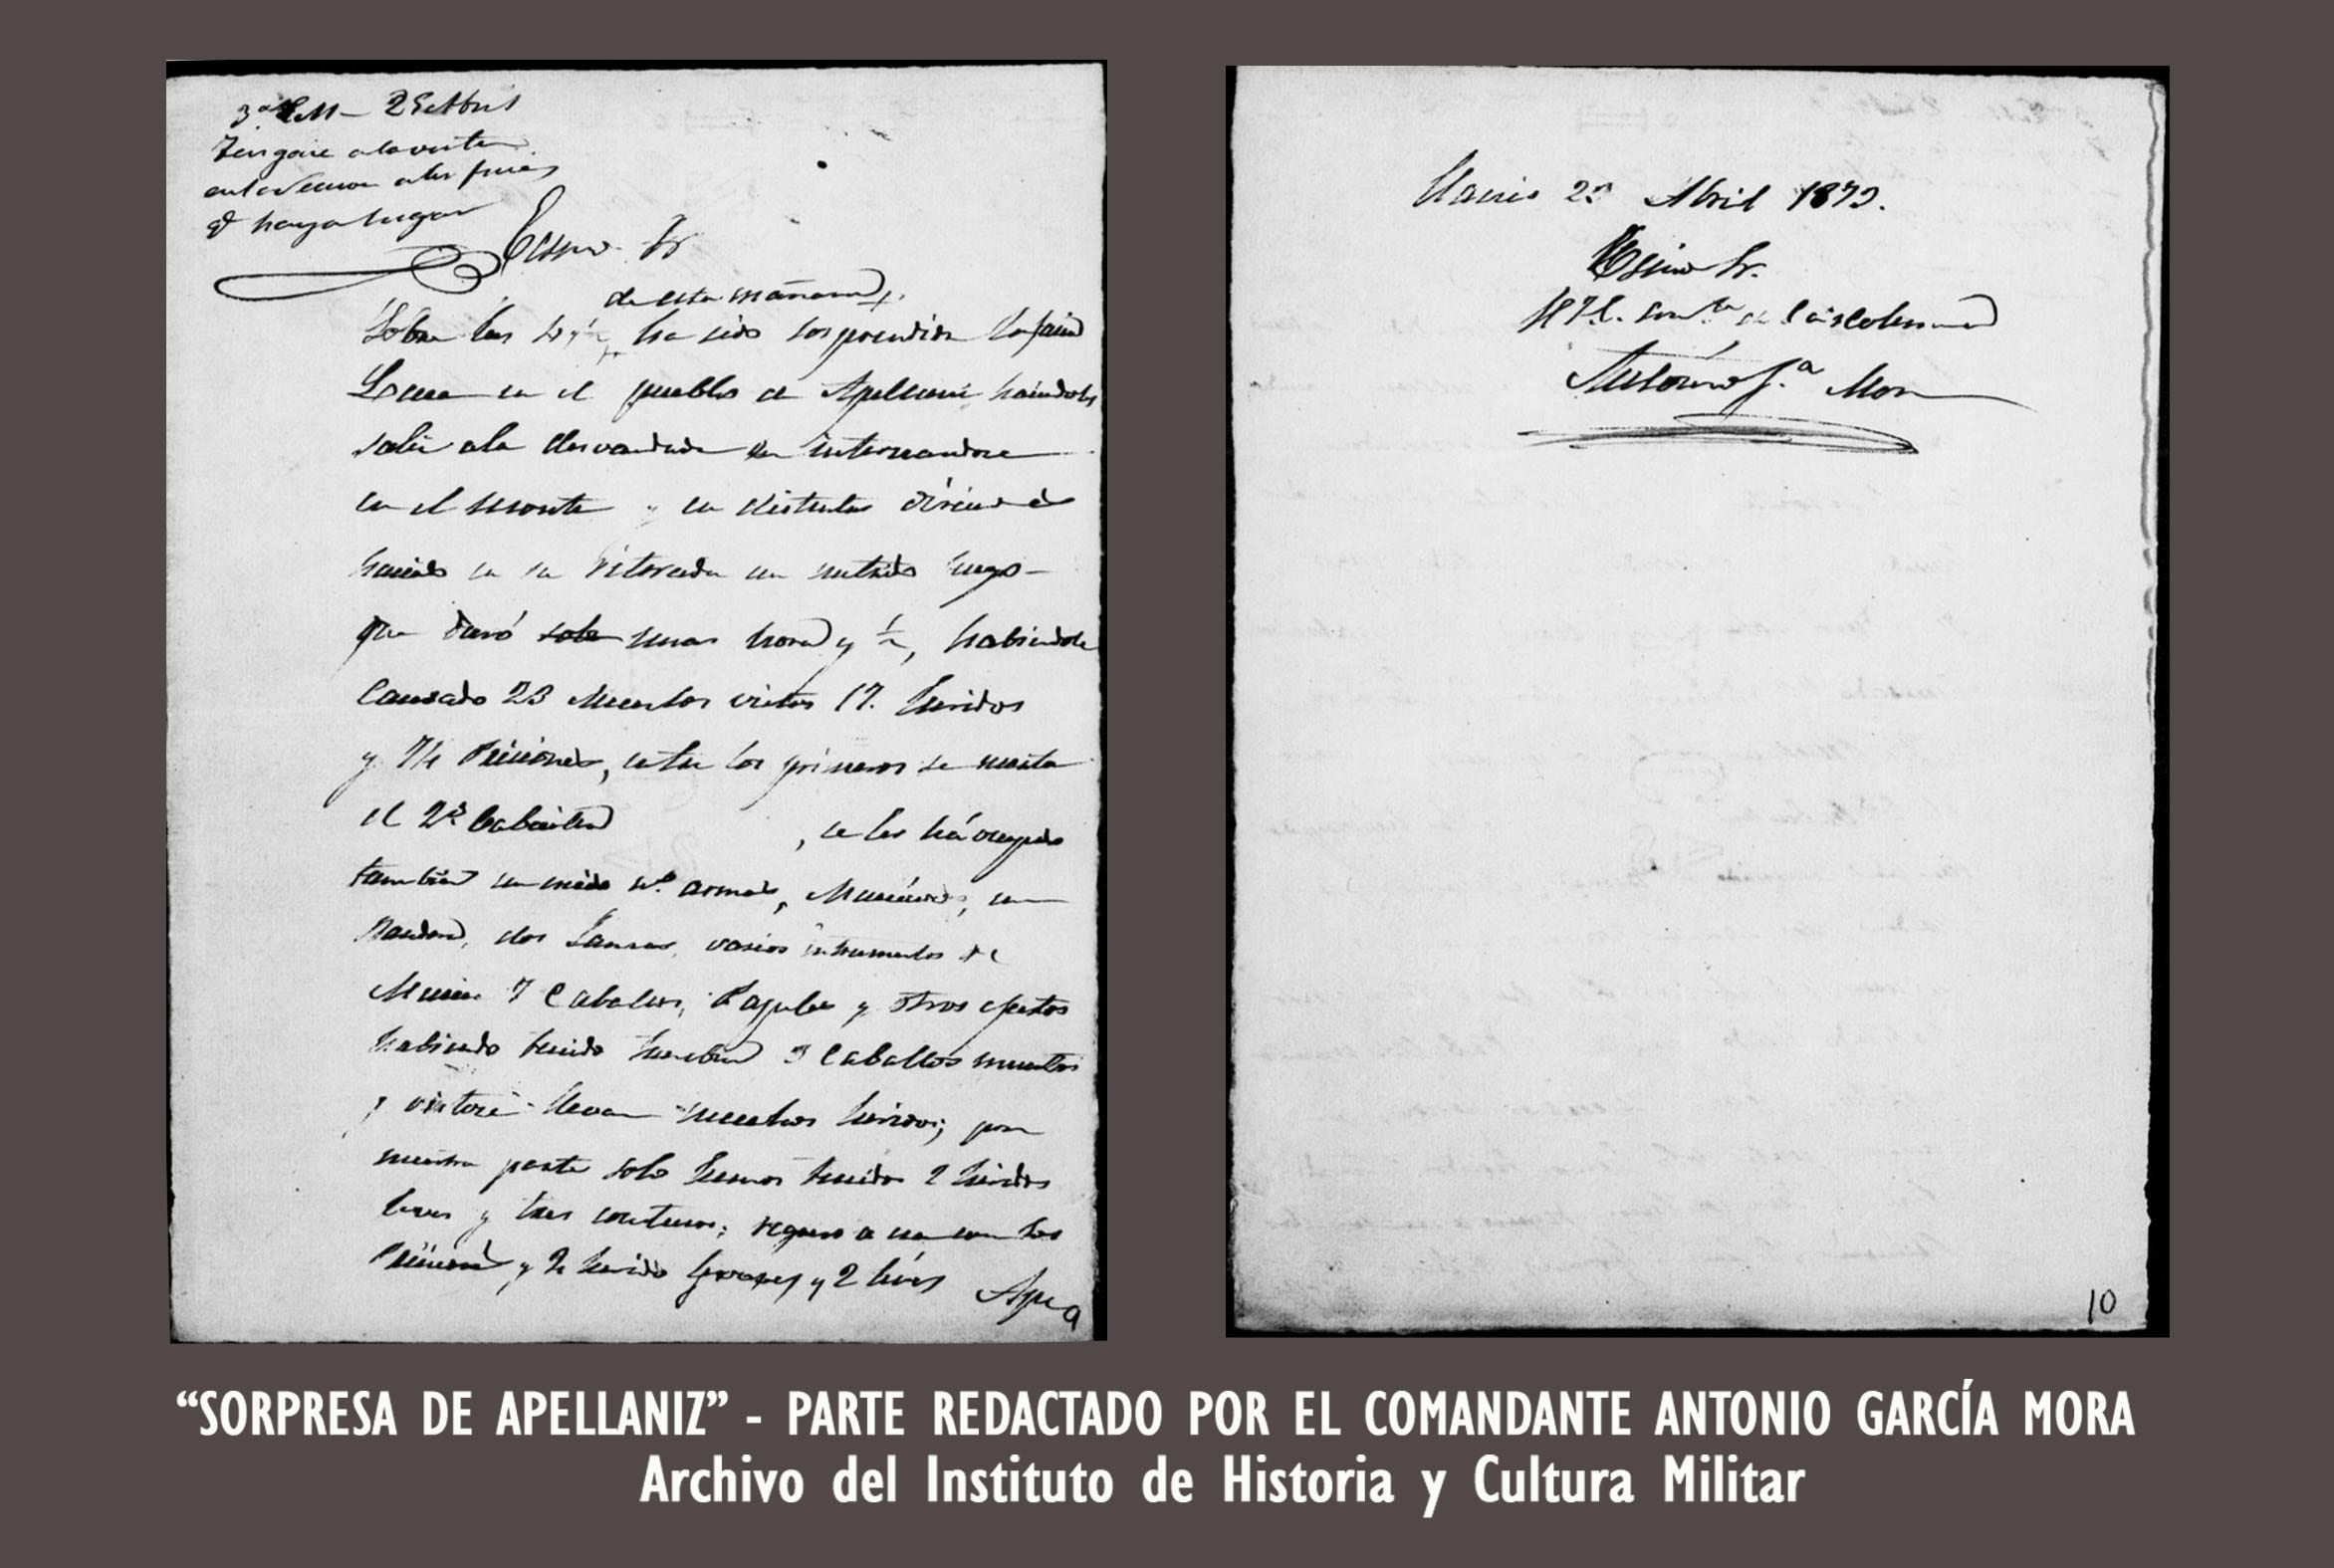 3ª E.M - 25 Abril
Tengase a la vista
en la accion a los fines
q haya lugar
Excmo. Sr
de esta mañana,
Sobre las ha sido sorprendida la facción
en el pueblo de Apellaniz haciendola
salir a la desvandada internandose
en el monte y en distintas direcciones
haciendo en su retirada un nutrido fuego
que duró unas hora y ½, habiendole
causado 23 muertos vistos 17. heridos
y 74 Prisioneros, entre los primeros se cuenta
el 2º Cabecilla , se les há ocupado
tambien un crecido nº armas, Municiones, un
dos Lanzas, varios instrumentos de
Musica 7 Caballos, Bagajes y otros efectos
habiendo tenido tambien 3 Caballos muertos
y llevan muchos heridos; por
nuestra parte solo hemos tenido 2 heridos
leves y tres contusos; regreso a esa con los
Prisioneros y 2 herido graves y 2 leves
9
23 Abril 1873.
Excmo Sr.
El T.C. Comte de la Columna
Antonio Gª Mora
10
“SORPRESA DE APELLANIZ” - PARTE REDACTADO POR EL COMANDANTE ANTONIO GARCÍA MORA
Archivo del Instituto de Historia y Cultura Militar